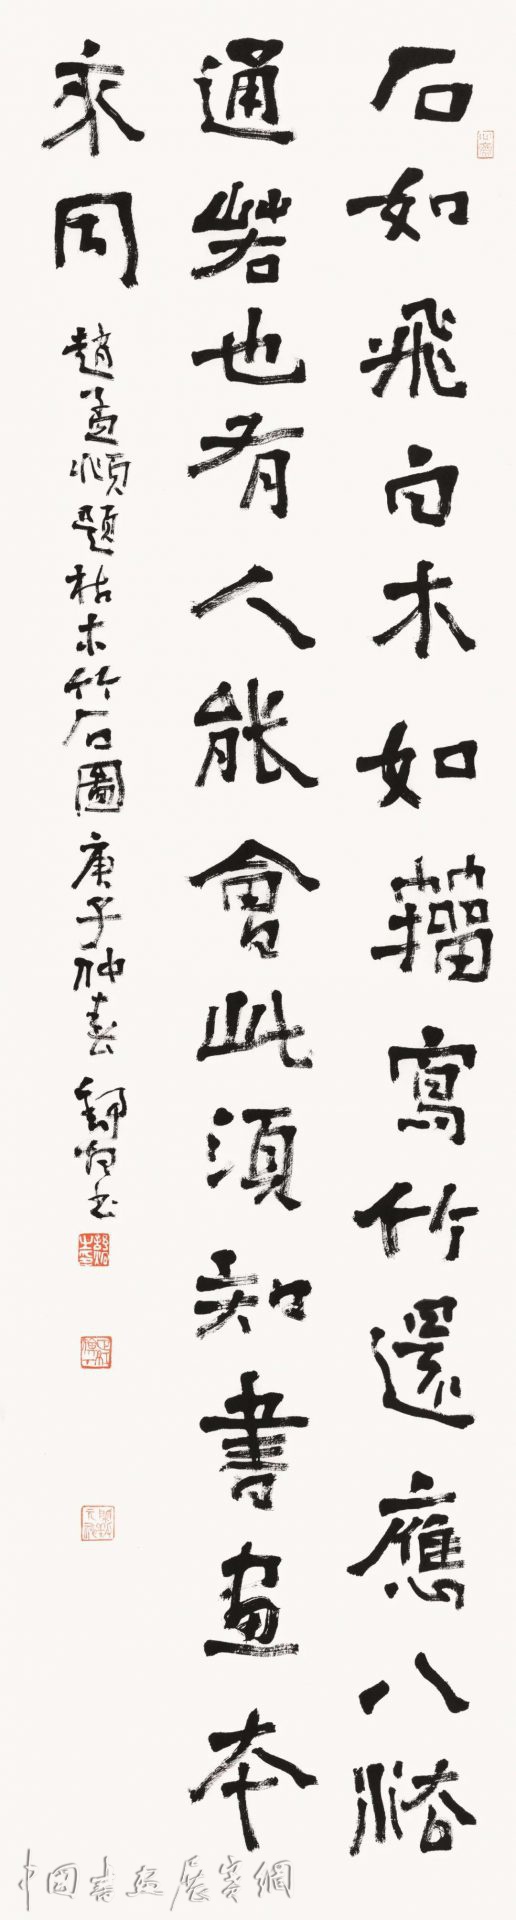 石如飛白木如籀寫竹還應八法
通若也有人能會此須知書畫本
來同 趙孟頫題枯木竹石圖 庚子仲春 书
中国書画展賽網